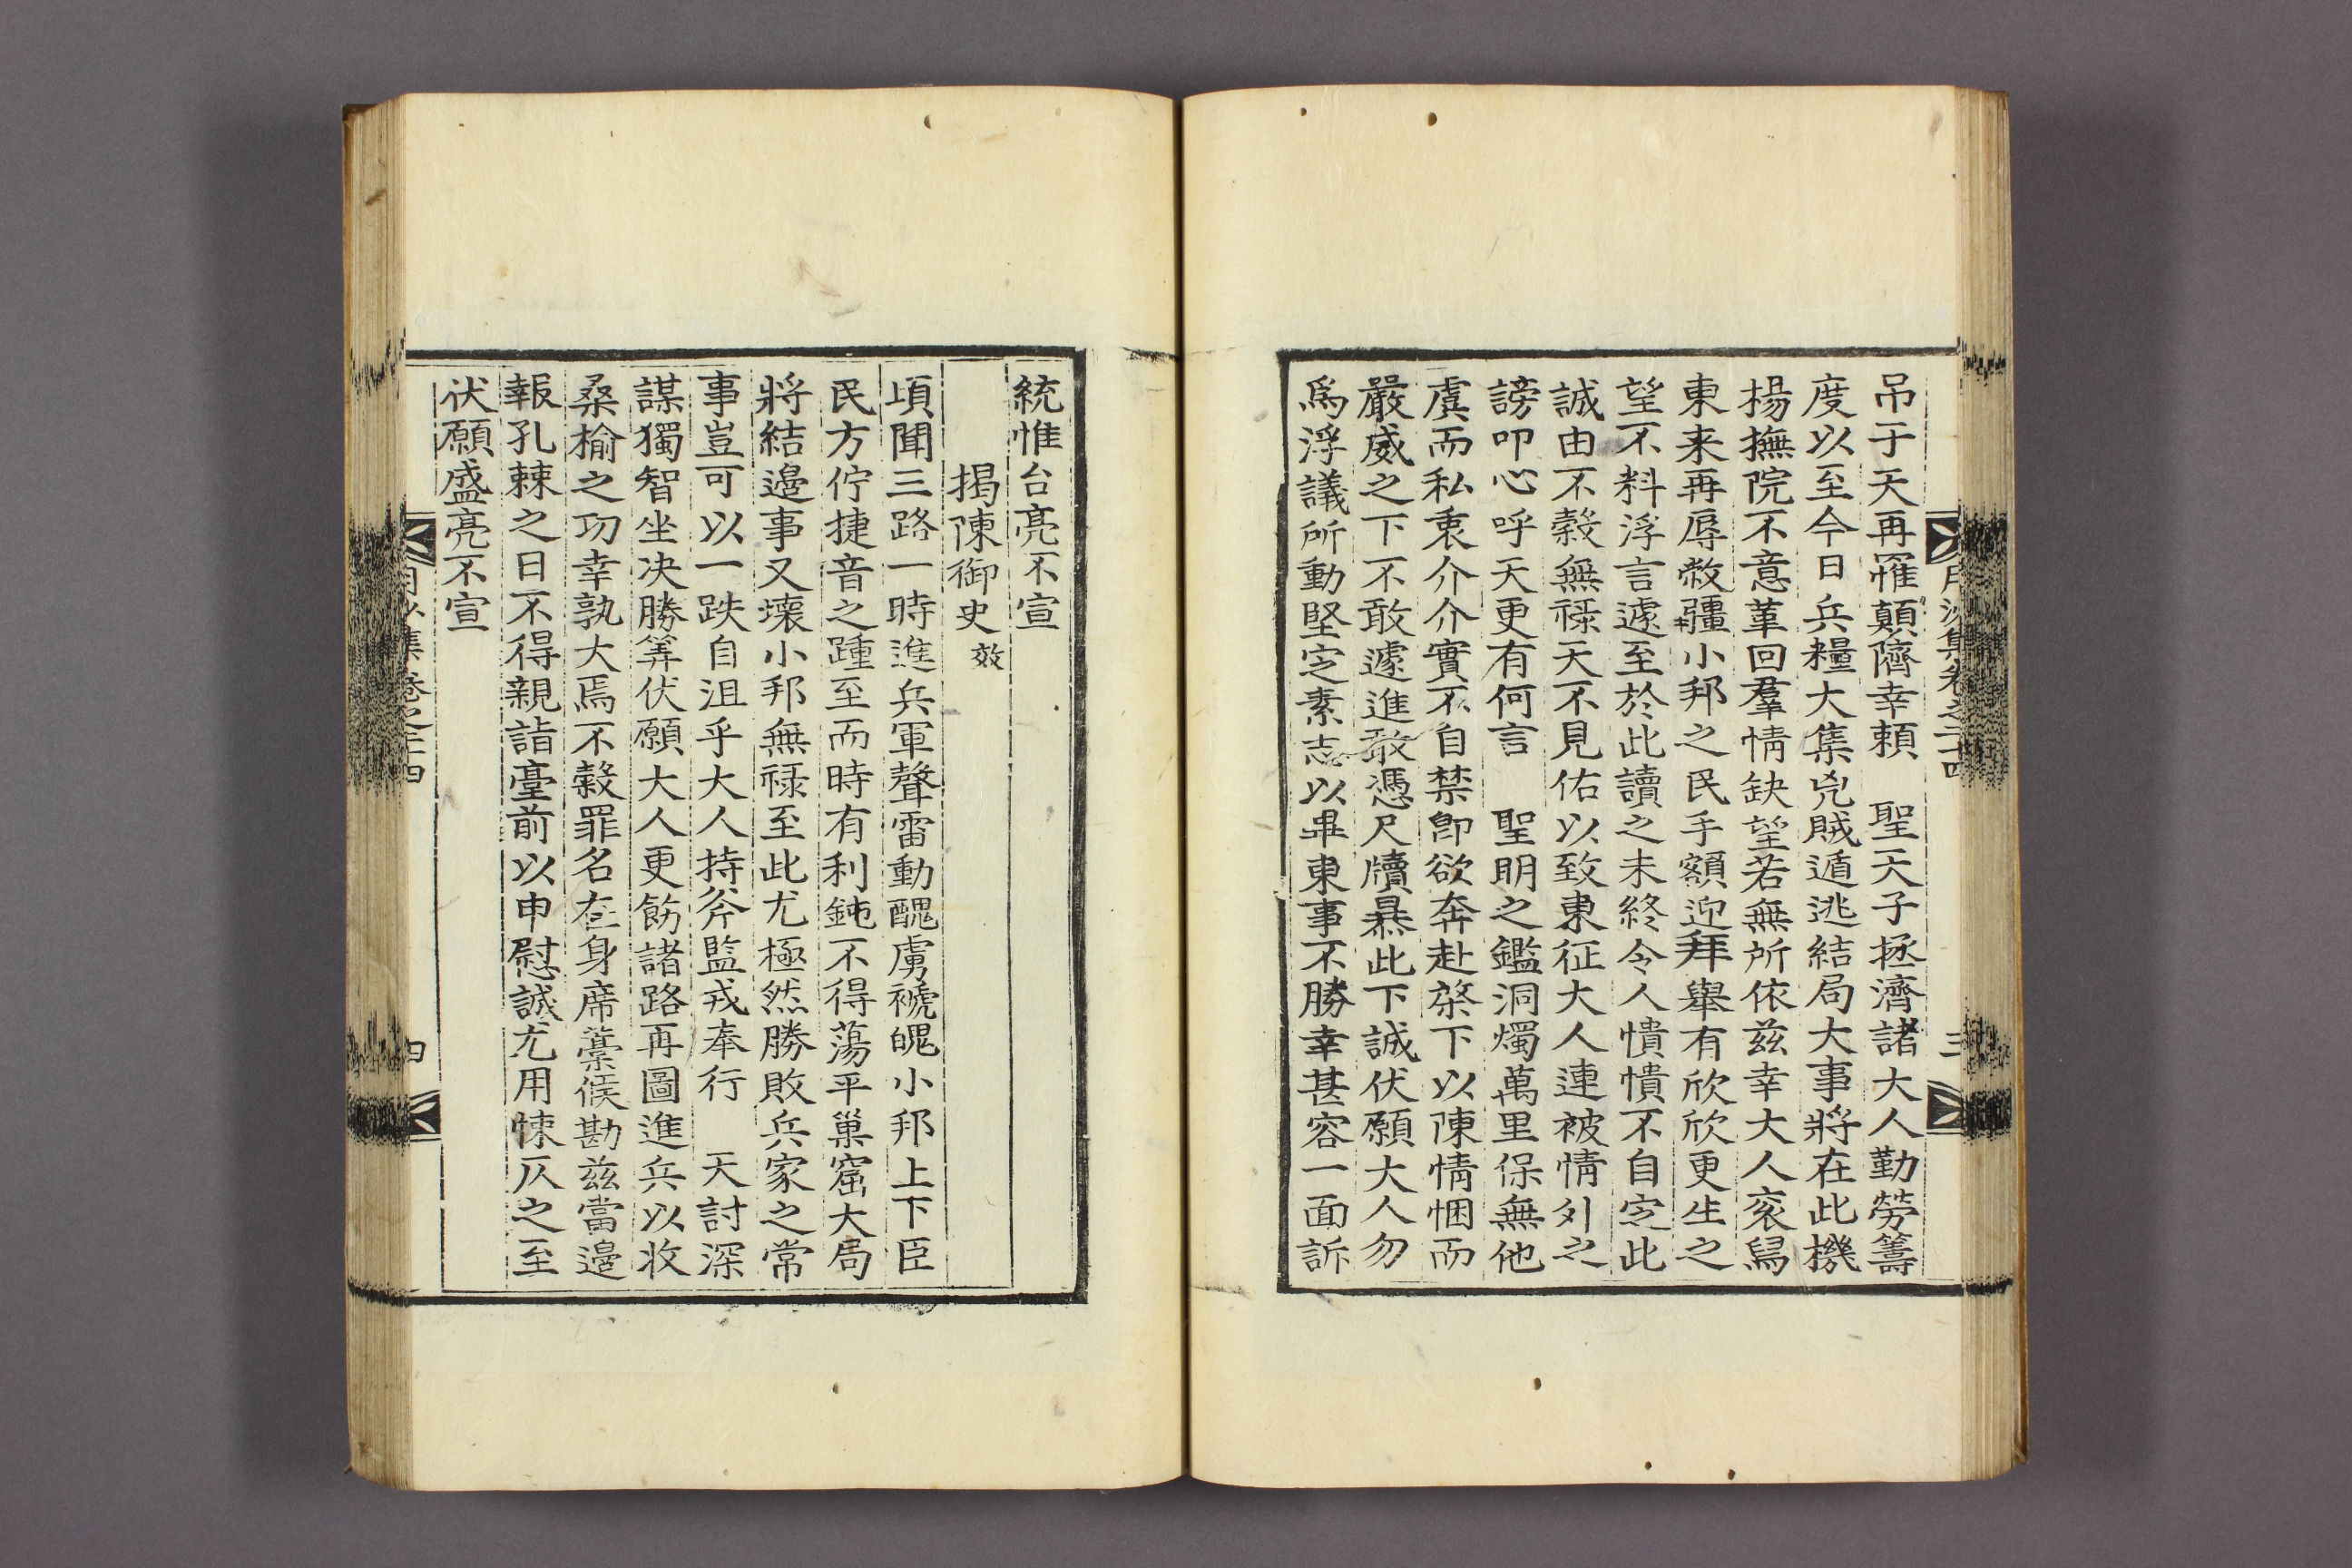 吊于天再罹顛隮幸頼　聖天子拯濟諸大人勤勞籌
度以至今日兵糧大集兇賊遁逃結局大事將在此機
楊撫院不意革回羣情缺望若無所依玆幸大人衮舄
東来再辱敝疆小邦之民手額迎拜舉有欣欣更生之
望不料浮言遽至於此讀之未終令人憒憒不自定此
誠由不穀無祿天不見佑以致東征大人連被情外之
謗叩心呼天更有何言　聖明之鑑洞燭萬里保無他
虞而私衷介介實不自禁卽欲奔赴棨下以陳情悃而
嚴威之下不敢遽進敢憑尺牘暴此下誠伏願大人勿
爲浮議所動堅定素志以畢東事不勝幸甚容一面訴
月沙集卷之二十四
三
統惟台亮不宣
揭陳御史效
頃聞三路一時進兵軍聲雷動醜虜褫魄小邦上下臣
民方佇捷音之踵至而時有利鈍不得蕩平巢窟大局
將結邊事又壞小邦無祿至此尤極然勝敗兵家之常
事豈可以一跌自沮乎大人持斧監戎奉行　天討深
謀獨智坐决勝筭伏願大人更飭諸路再圖進兵以收
桑榆之功幸孰大焉不穀罪名在身席藁候勘玆當邊
報孔棘之日不得親詣臺前以申慰誠尤用悚仄之至
伏願盛亮不宣
月沙集卷之二十四
四